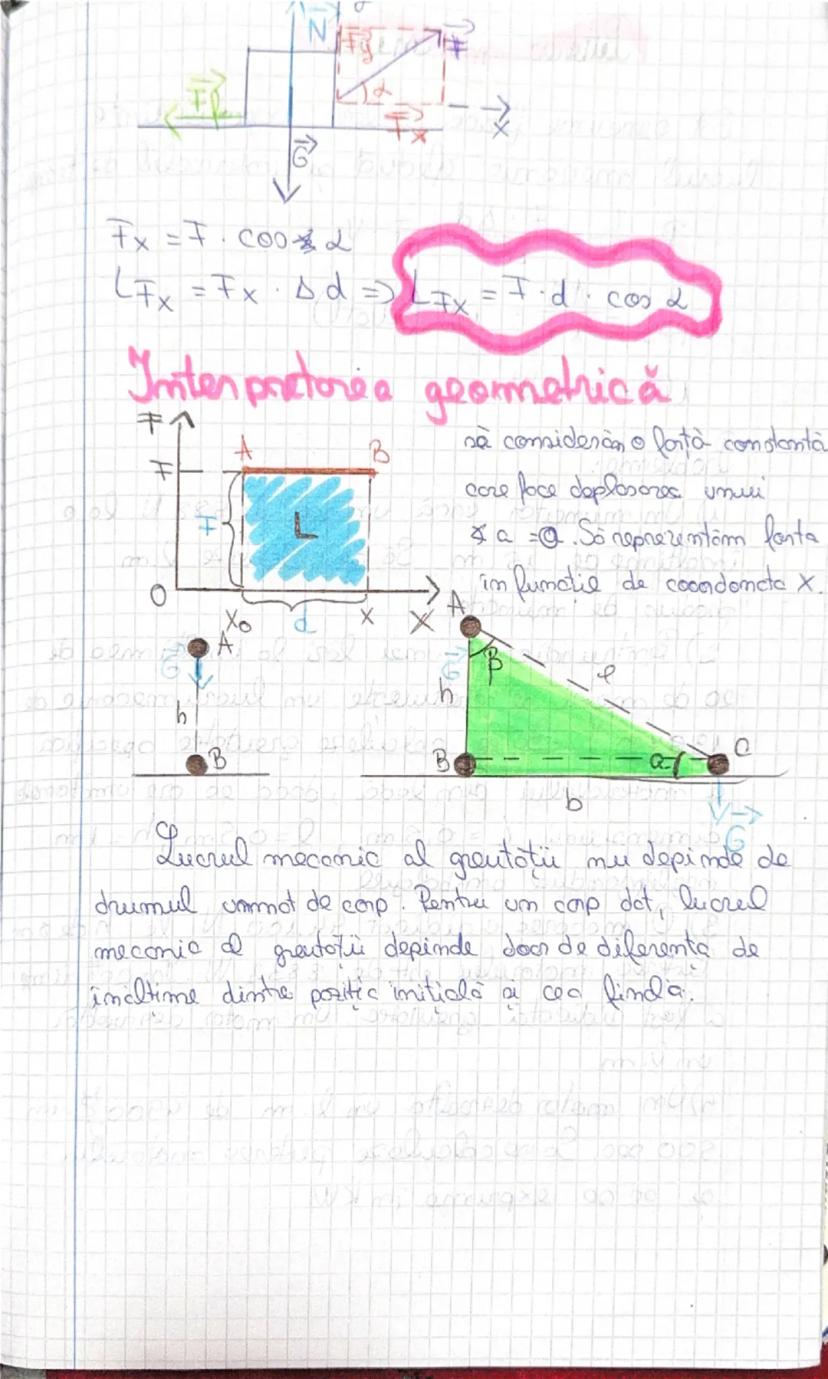 N
Fy
F
α
Ff
Fx
x
G
Fx = F · cos α
LFx = Fx · Δd => LFx = F · d · cos α
Interpretarea geometrică
F
A
B
F
F
L
O
x0
d
x
X
să considerăn o forță constantă
care face deplasarea unui
a = a. Să reprezentăm forta
în funcție de coordonata X.
A
G
h
B
A
G
β
h
l
B
α
C
b
G
Lucrul mecanic al greutății nu depinde de
drumul urmat de corp. Pentru un corp dat, lucrul
mecanic al greutății depinde doar de diferenta de
înaltime dintre poziția initială și cea finala.